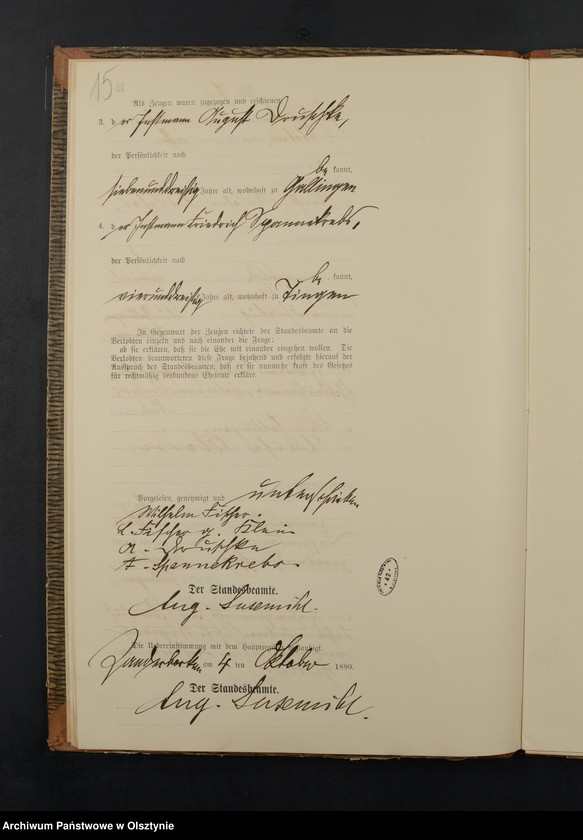 15
Als Zeugen waren zugezogen und erschienen:
3. der Instmann August Druschke,
der Persönlichkeit nach
be kannt,
siebenunddreißig Jahre alt, wohnhaft zu Gallingen
4. der Instmann Friedrich Spannekrebs,
der Persönlichkeit nach
be kannt,
vierunddreißig Jahre alt, wohnhaft zu Tingen
In Gegenwart der Zeugen richtete der Standesbeamte an die
Verlobten einzeln und nach einander die Frage:
ob sie erklären, daß sie die Ehe mit einander eingehen wollen. Die
Verlobten beantworteten diese Frage bejahend und erfolgte hierauf der
Ausspruch des Standesbeamten, daß er sie nunmehr kraft des Gesetzes
für rechtmäßig verbundene Eheleute erkläre.
Vorgelesen, genehmigt und unterschrieben
Wilhelm Fischer.
L. Fischer g. Klein
A. Druschke
F. Spannekrebs.
Der Standesbeamte.
Aug. Susemihl.
Die Uebereinstimmung mit dem Hauptregister beglaubigt.
am 4 ten Oktober 1880.
Der Standesbeamte.
Aug. Susemihl.
42
Archiwum Państwowe w Olsztynie